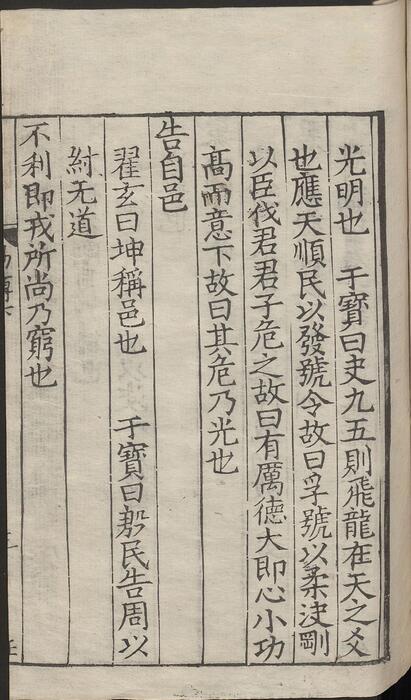 光明也　于寶曰夬九五則飛龍在天之爻
也應天順民以發號令故曰孚號以柔決剛
以臣伐君君子危之故曰有厲德大即心小功
高而意下故曰其危乃光也
告自邑
翟玄曰坤稱邑也　于寶曰殷民告周以
紂无道
不利即戎所尚乃窮也